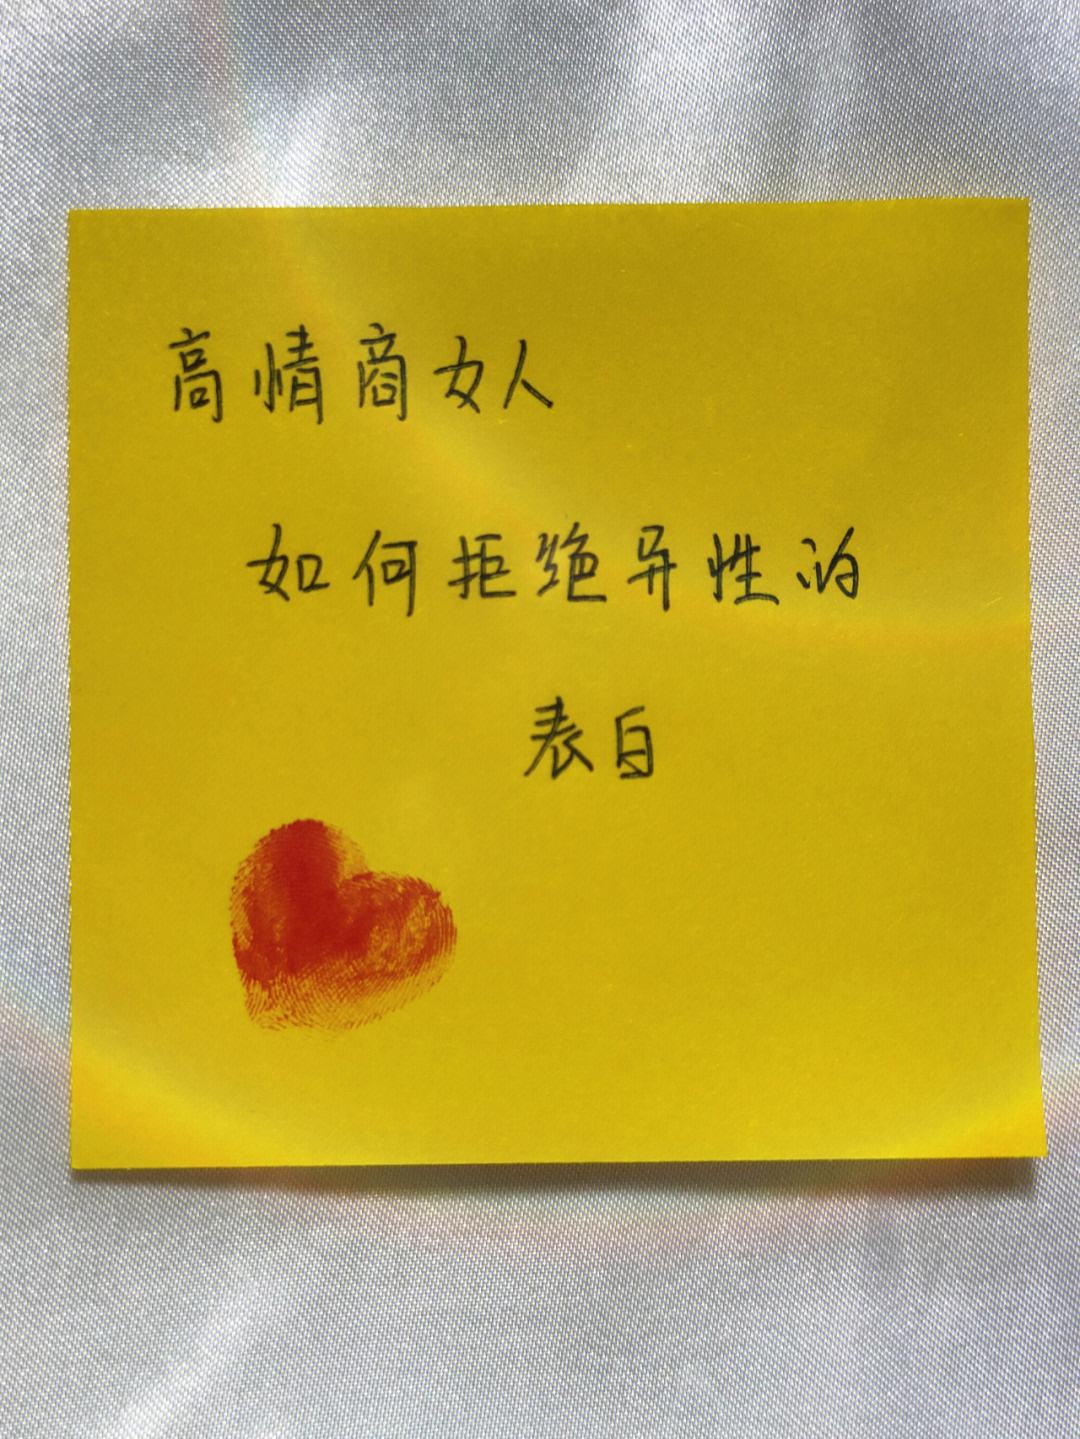 高情商女人
如何拒绝异性的
表白